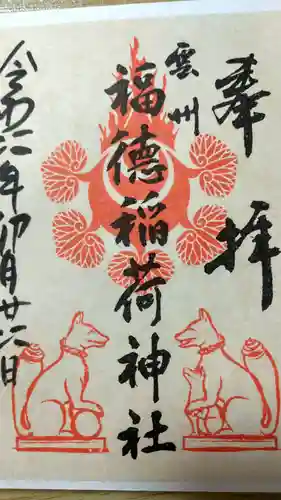 奉拝
雲州
福徳稲荷神社
令和二年卯月廿六日